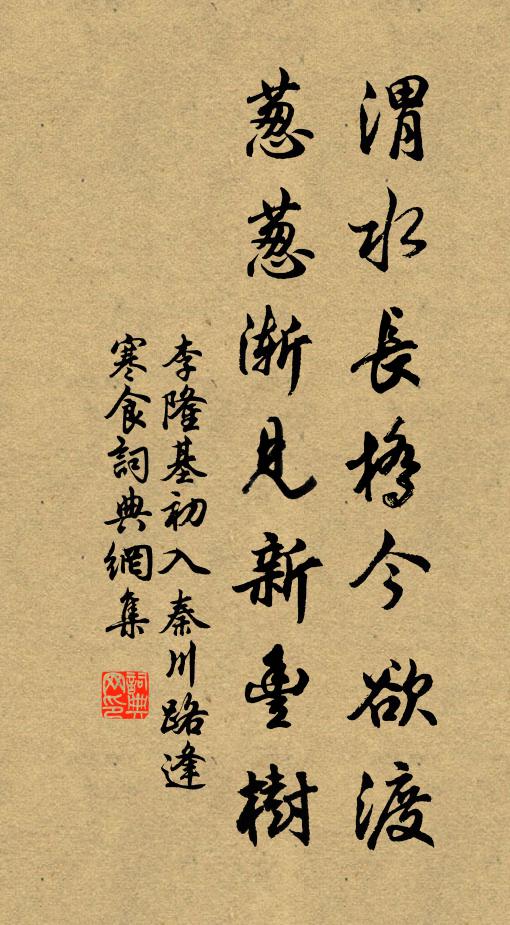 渭水長橋今欲渡
葱葱漸見新豐樹
李隆基初入秦川路逢
寒食詞典網集
詞典
网印